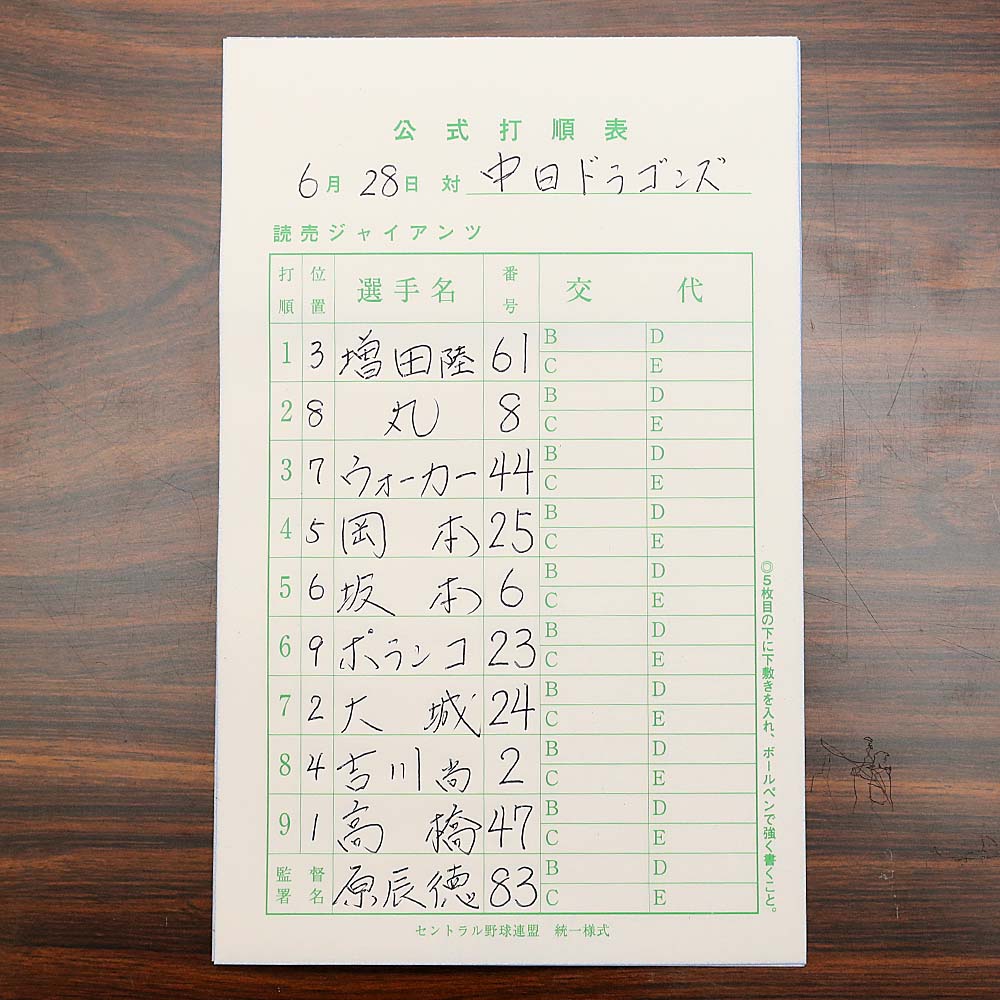 公式打順表
6月28日 対 中日ドラゴンズ
読売ジャイアンツ
打順 位置 選手名 番号 交代
1 3 増田陸 61 B D
C E
2 8 丸 8 B D
C E
3 7 ウォーカー 44 B D
C E
4 5 岡本 25 B D
C E
5 6 坂本 6 B D
C E
6 9 ポランコ 23 B D
C E
7 2 大城 24 B D
C E
8 4 吉川尚 2 B D
C E
9 1 高橋 47 B D
C E
監督署名 原辰徳 83 B D
C E
◎5枚目の下に下敷きを入れ、ボールペンで強く書くこと。
セントラル野球連盟 統一様式